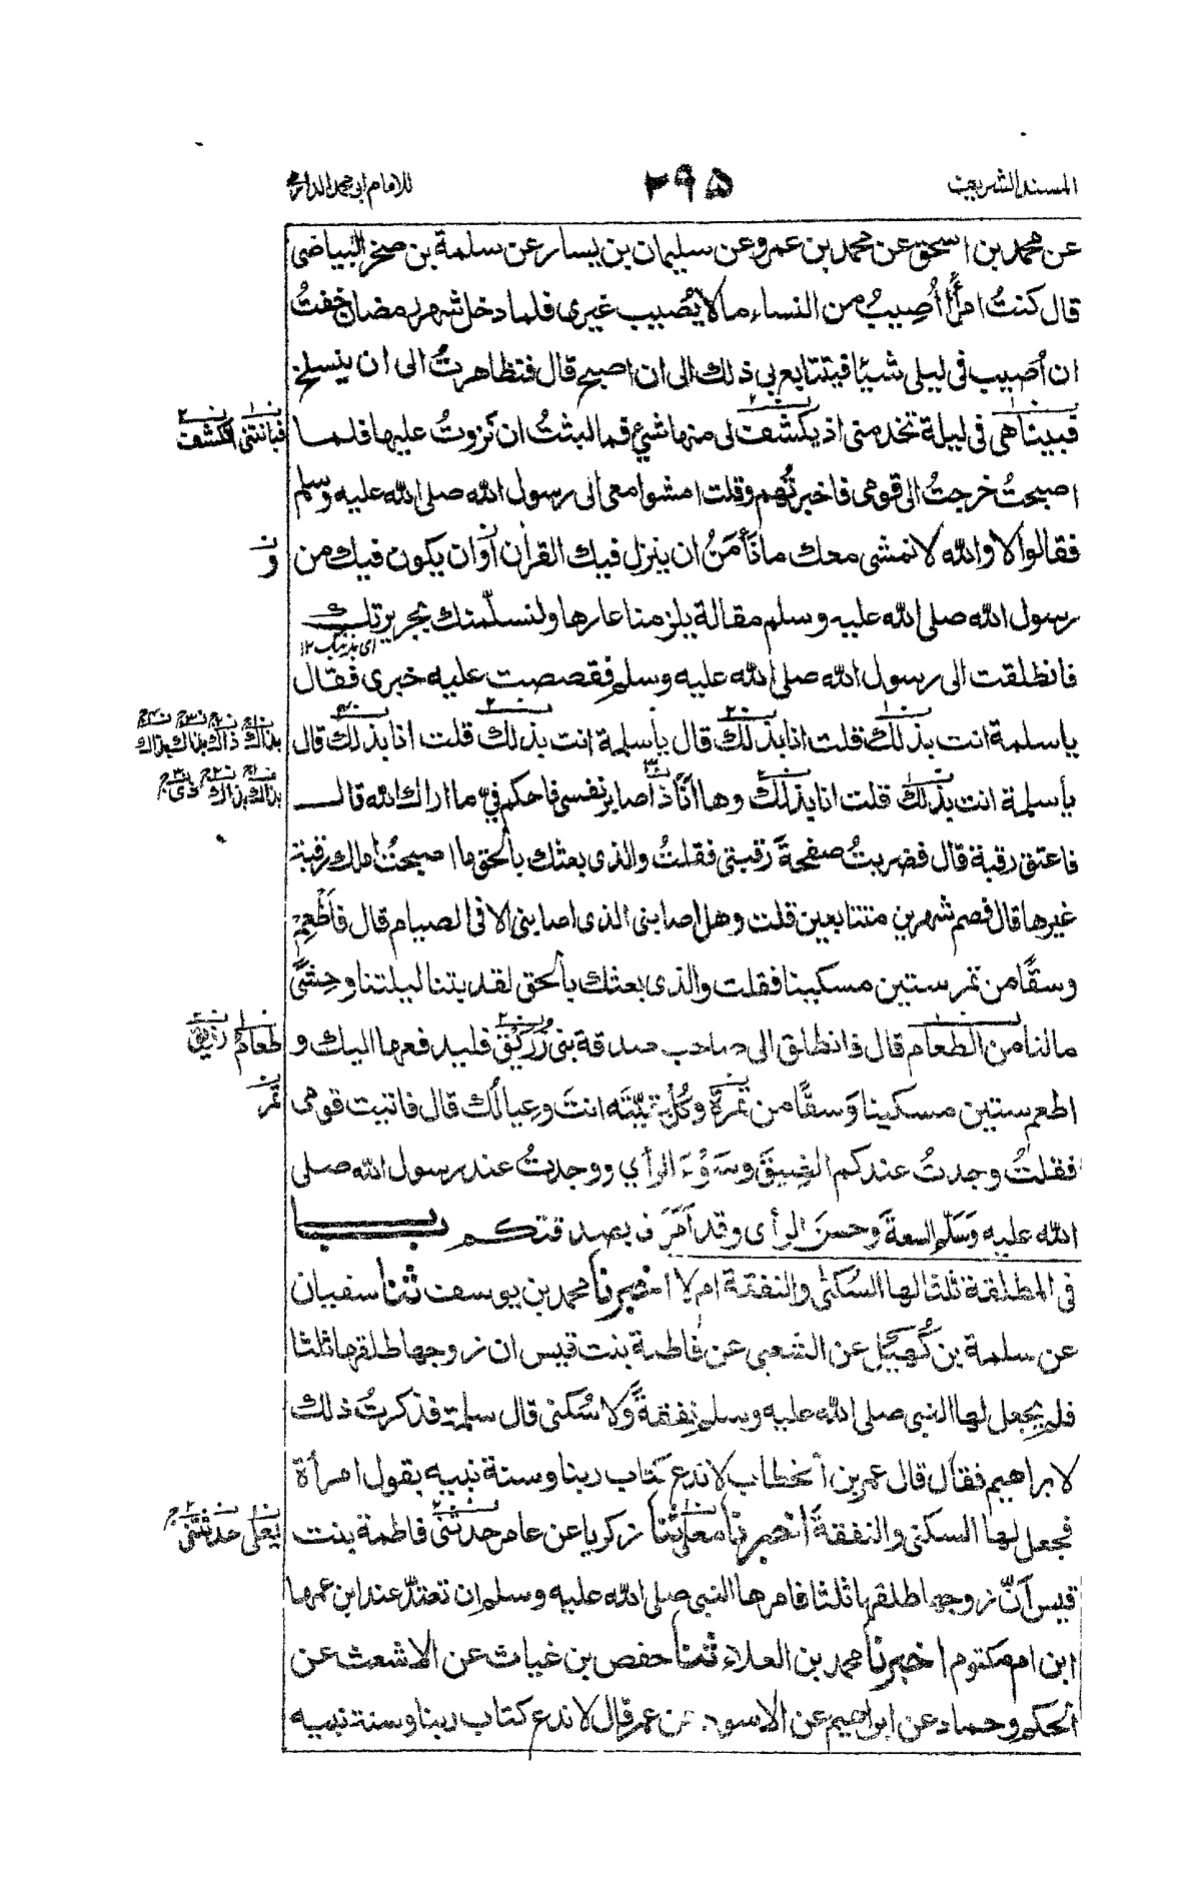 المسند الشريف
٢٩٥
للامام ابى محمد الدارمى
عن محمد بن اسحق عن محمد بن عمرو عن سليمان بن يسار عن سلمة بن صخر البياضى
قال كنتُ امرأً أُصِيبُ من النساء مالا يُصيب غيرى فلما دخل شهر رمضان خفتُ
ان أُصيب فى ليلى شيئا فيتتابع بى ذلك الى ان اصبح قال فتظاهرتُ الى ان ينسلخ
فبينا هى فى ليلة تخدمنى اذ يكشف لى منها شئ فما لبثتُ ان نزوتُ عليها فلما
فبانتنى تكشف
اصبحتُ خرجتُ الى قومى فاخبرتُهم وقلت امشوا معى الى رسول الله صلى الله عليه وسلم
فقالوا لا والله لا نمشى معك ما نَأمَنُ ان ينزل فيك القرآن أو ان يكون فيك من
و
رسول الله صلى الله عليه وسلم مقالة يلزمنا عارها ولنسلّمنك بجريرتك
اى بذنبك ١٢
فانطلقت الى رسول الله صلى الله عليه وسلم فقصصت عليه خبرى فقال
ياسلمة انت بذلك قلت انا بذلك قال يأسلمة انت بذلك قلت انا بذلك قال
بذاك ذاك بذاك بذاك
يأسلمة انت بذلك قلت انا بذلك وها أناذا صابر نفسى فاحكم فىّ ما اراك الله قال
بذاك بذاك ذى
فاعتق رقبة قال فضربتُ صفحةَ رقبتى فقلتُ والذى بعثك بالحق ما اصبحتُ املك رقبة
غيرها قال فصم شهرين متتابعين قلت وهل اصابنى الذى اصابنى الا فى الصيام قال فأَطْعِم
وسقًا من تمر ستين مسكينا فقلت والذى بعثك بالحق لقد بتنا ليلتنا وحشىً
مالنا من الطعام قال فانطلق الى صاحب صدقة بنى زُرَيْق فليدفعها اليك و
طعام
اطعم ستين مسكينا وَسقًا من تمرة وكُل بقيّته انتَ وعيالُك قال فاتيت قومى
تمر
فقلتُ وجدتُ عندكم الضيقَ وسُوْءَ الرأي ووجدتُ عند رسول الله صلى
الله عليه وَسَلَّم السعةَ وحسنَ الرأى وقد أمَرَ لى بصدقتكم باب
فى المطلقة ثلثا لها السُكنى والنفقة ام لا اخبرنا محمد بن يوسف ثنا سفيان
عن سلمة بن كُهَيْلٍ عن الشعبى عن فاطمة بنت قيس ان زوجها طلقها ثلثا
فلم يجعل لها النبى صلى الله عليه وسلم نفقةً ولا سُكنى قال سلمة فذكرتُ ذلك
لابراهيم فقال قال عمر بن الخطاب لا ندع كتاب ربنا وسنة نبيه بقول امرأة
فجعل لها السكنى والنفقةَ اخبرنا معلى ثنا زكريا عن عامر حدثنى فاطمة بنت
يعلى حدثتنى
قيس أنّ زوجها طلقها ثلثا فامرها النبى صلى الله عليه وسلم ان تعتدّ عند ابن عمها
ابن ام مكتوم اخبرنا محمد بن العلاء ثنا حفص بن غياث عن الاشعث عن
الحكم وحماد عن ابراهيم عن الاسود عن عمر قال لا ندع كتاب ربنا وسنة نبيه